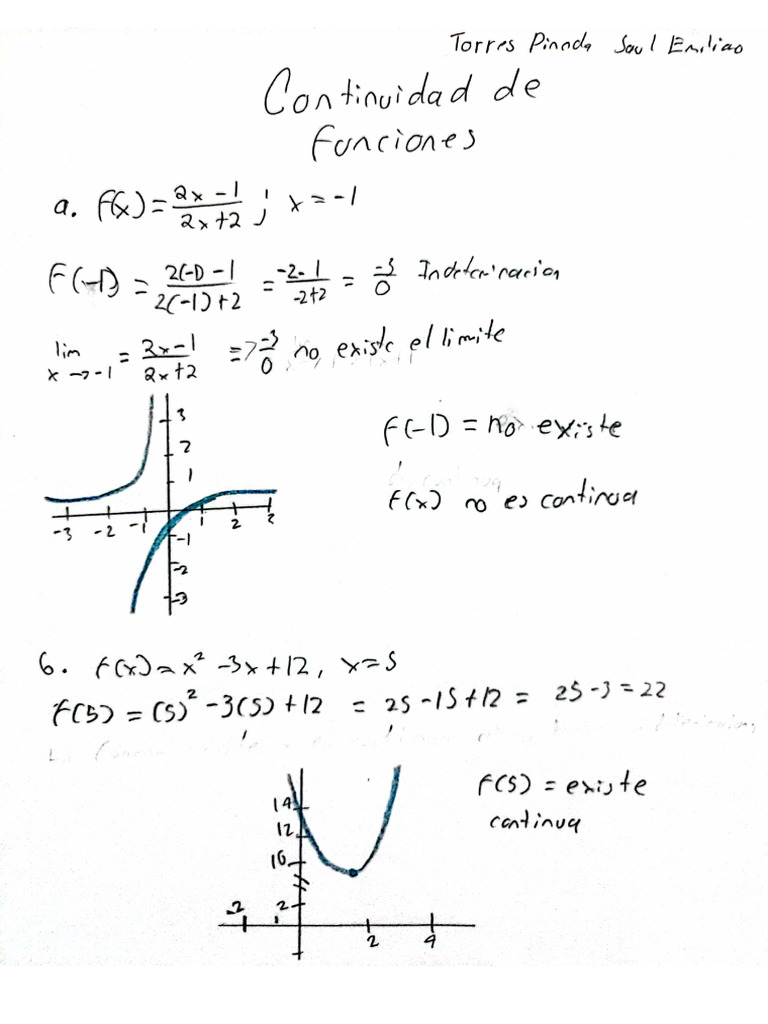 Torres Pineda Saul Emiliao
Continuidad de
funciones
a. f(x) = 2x-1/2x+2 ; x = -1
F(-1) = 2(-1)-1/2(-1)+2 = -2-1/-2+2 = -3/0 Indeterminacion
lim x→-1 = 2x-1/2x+2 => -3/0 no existe el limite
3
2
1
-3 -2 -1 1 2 3
-1
-2
-3
f(-1) = no existe
f(x) no es continua
b. f(x) = x² -3x+12, x=5
f(5) = (5)² -3(5)+12 = 25-15+12 = 25-3=22
14
12
10
2
-2 2 4
f(5) = existe
continua